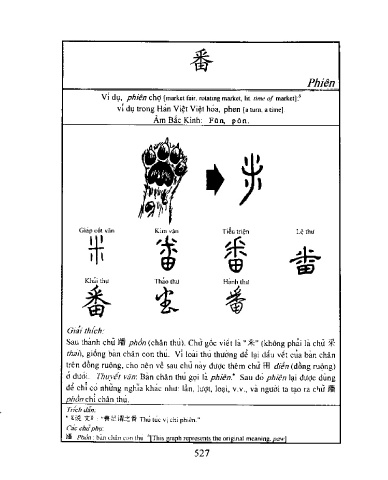 番
Phiên
Ví dụ, phiên chợ [market fair, rotating market, lit time of market];
ví dụ trong Hán Việt Việt hóa, phen [a turn, a time]
Âm Bắc Kinh: Fān, pān.
Giáp cốt văn Kim văn Tiểu triện Lệ thư
Khải thư Thảo thư Hành thư
番
Giải thích:
Sau thành chữ 蹯 phồn (chân thú). Chữ gốc viết là "釆" (không phải là chữ 采
thái), giống bàn chân con thú. Vì loài thú thường để lại dấu vết của bàn chân
trên đồng ruộng, cho nên về sau chữ này được thêm chữ 田 điền (đồng ruộng)
ở dưới. Thuyết văn: Bàn chân thú gọi là phiên. Sau đó phiên lại được dùng
để chỉ có những nghĩa khác như: lần, lượt, loại, v.v., và người ta tạo ra chữ 蹯
phồn chỉ chân thú.
Trích dẫn:
Thú túc vị chi phiên."
Các chữ phụ:
蹯 Phồn: bàn chân con thú [This graph represents the original meaning, paw]
527